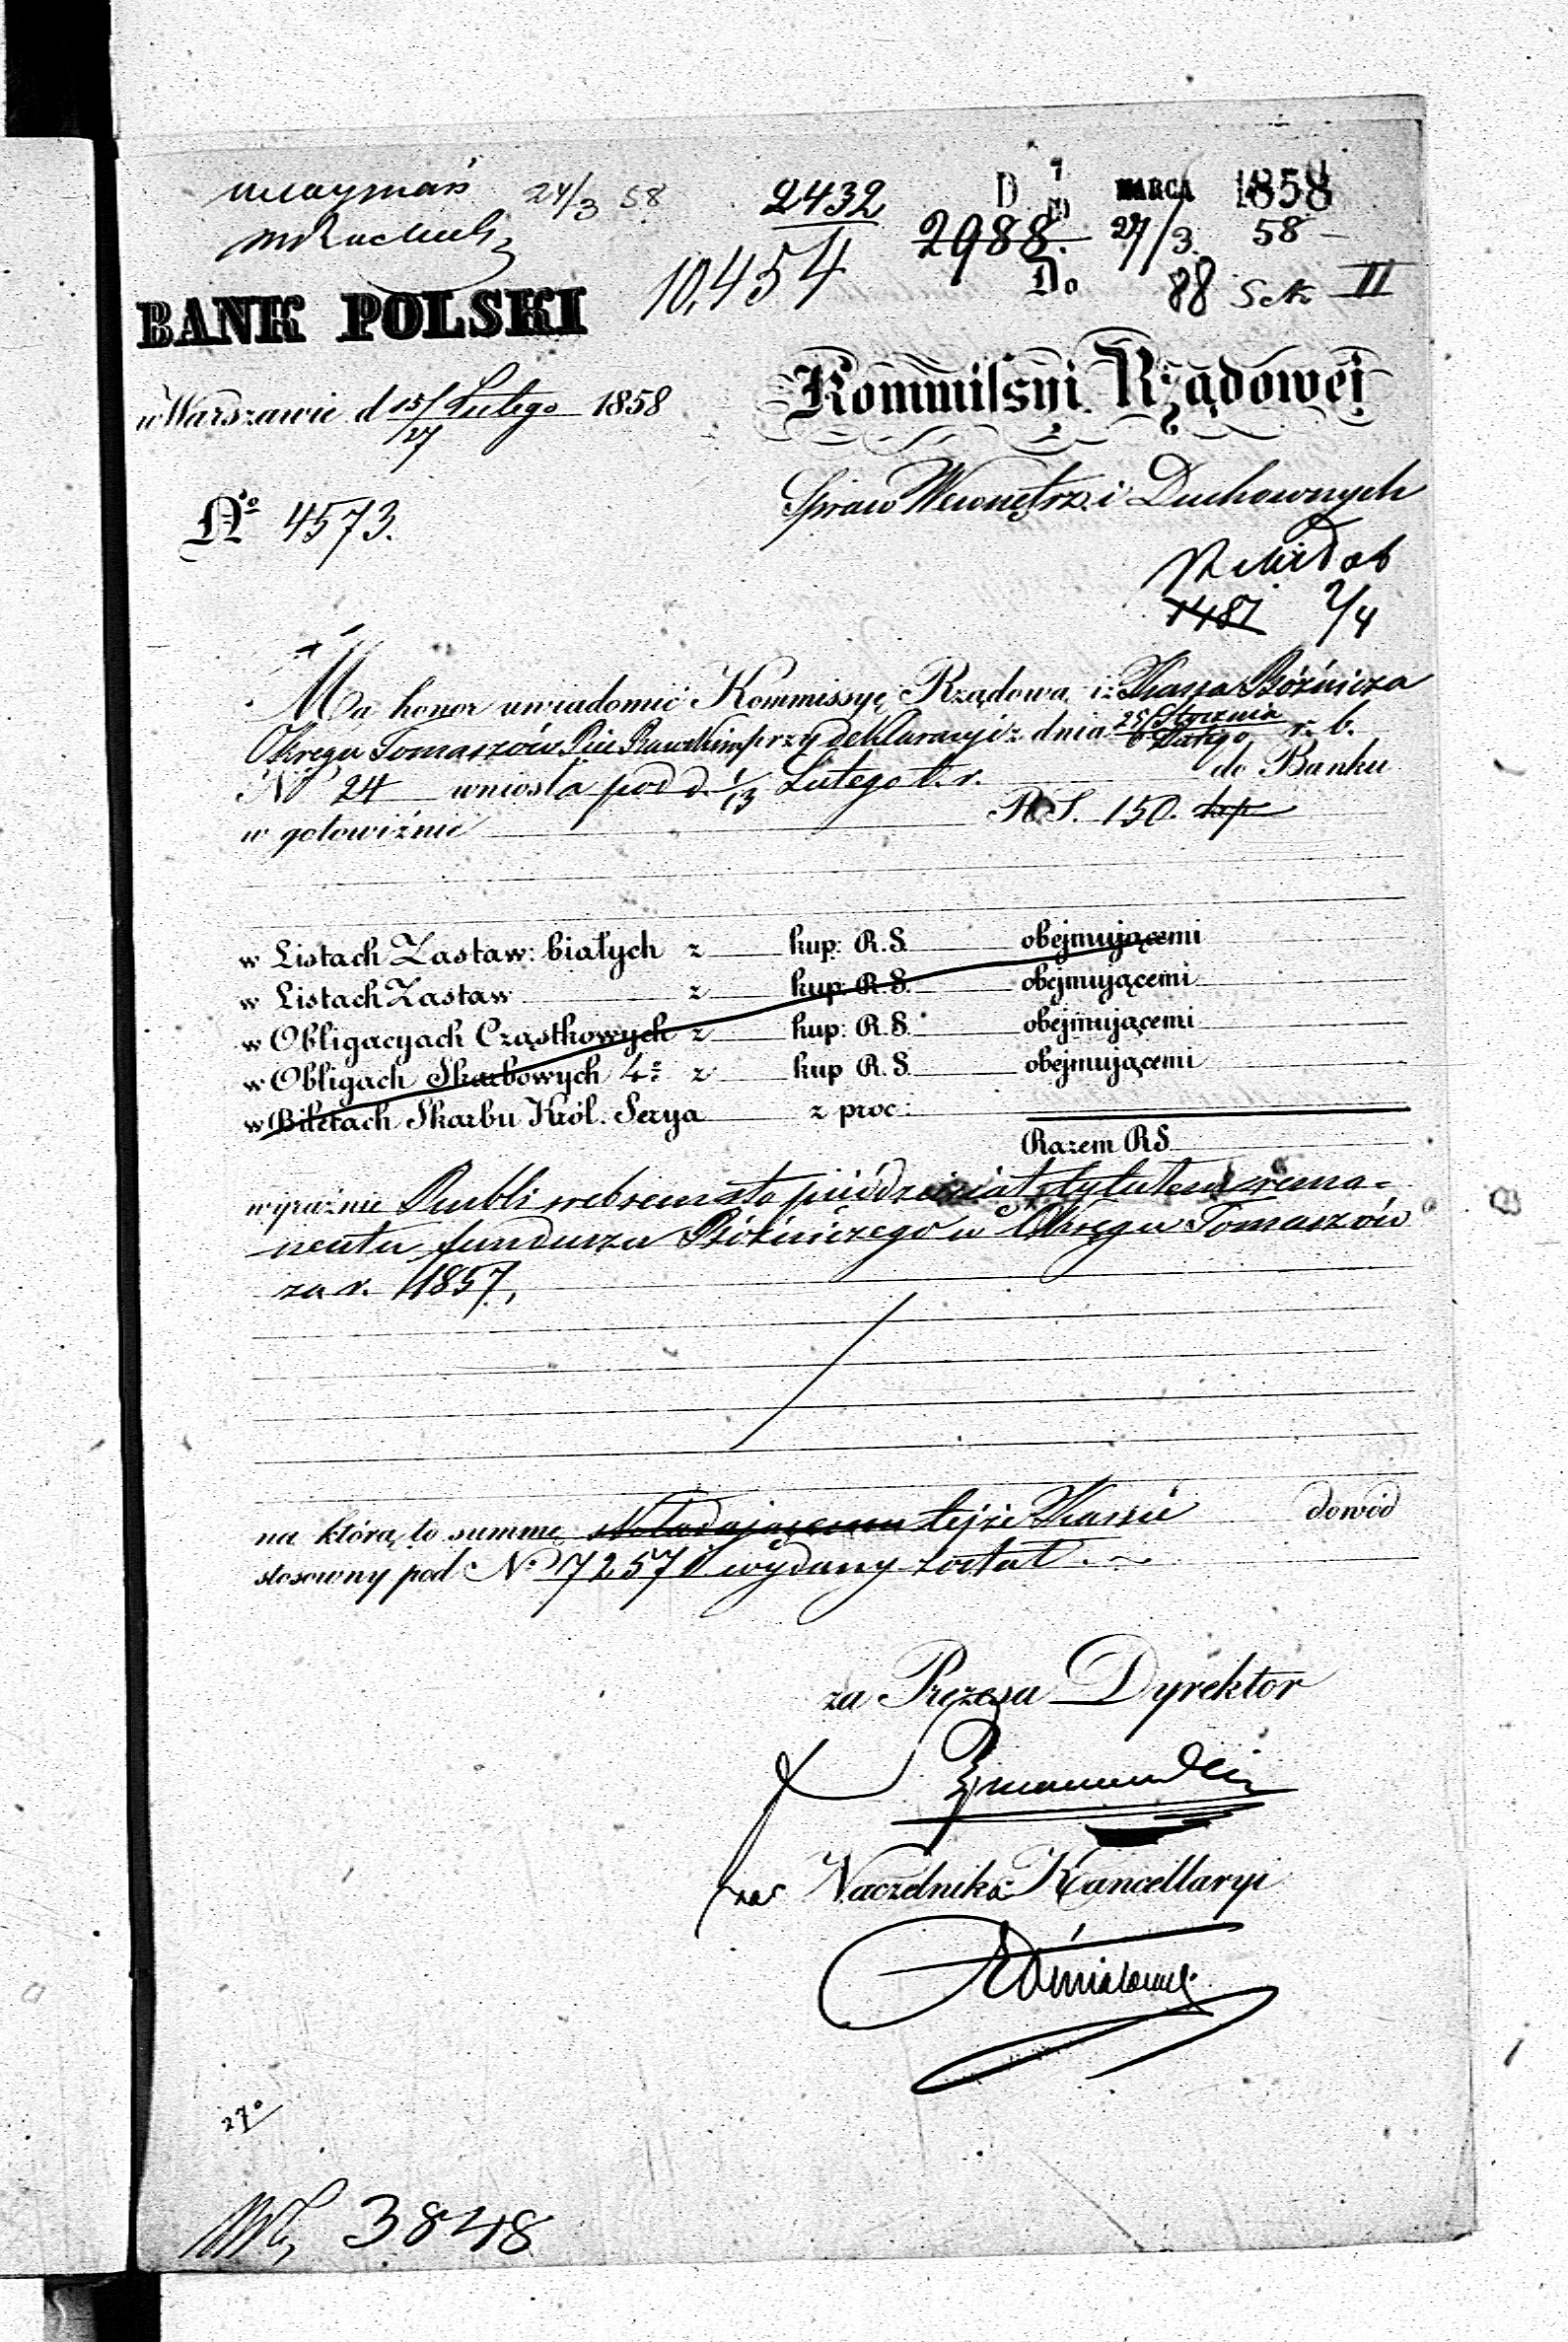 24/3 58
2432
D. 7 MARCA 1858
2988. 27/3. 58
10,454
Do 88 Sek II
BANK POLSKI
w Warszawie d 15/27 Lutego 1858
Kommissyi Rządowej
Spraw Wewnętrz. i Duchownych
No 4573.
1487 2/4
Ma honor uwiadomić Kommissyę Rządową, iż Kassa Bóźnicza
Okręgu Tomaszów przy deklaracyi z dnia 25/6 Stycznia/Lutego r. b.
No 24 wniosła pod d. 1/13 Lutego t. r. do Banku
w gotowiźnie RS. 150. kop
w Listach Zastaw: białych z kup: R.S. obejmującemi
w Listach Zastaw z kup: R.S. obejmującemi
w Obligacyach Cząstkowych z kup: R.S. obejmującemi
w Obligach Skarbowych 4% z kup R.S. obejmującemi
w Biletach Skarbu Król. Serya z proc:
Razem RS
wyraźnie Rubli srebrem sto pięćdziesiąt tytułem rema=
nentu funduszu Bóźniczego w Okręgu Tomaszów
za r. 1857,
na którą to summę składającemu tejże Kassie dowód
stosowny pod No 7257 wydany został.
za Prezesa Dyrektor
Naczelnika Kancellaryi
3848